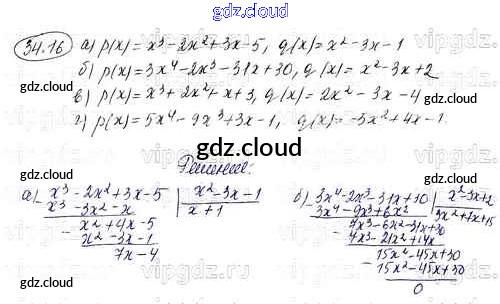 gdz.cloud
34.16 а) p(x) = x³ - 2x² + 3x - 5, q(x) = x² - 3x - 1
б) p(x) = 3x⁴ - 2x³ - 31x + 30, q(x) = x² - 3x + 2
в) p(x) = x³ + 2x² + x + 3, q(x) = 2x² - 3x - 4
г) p(x) = 5x⁴ - 9x³ + 3x - 1, q(x) = -3x² + 4x - 1.
gdz.cloud
Решение:
а) x³ - 2x² + 3x - 5 | x² - 3x - 1
x³ - 3x² - x | x + 1
x² + 4x - 5
x² - 3x - 1
7x - 4
б) 3x⁴ - 2x³ - 31x + 30 | x² - 3x + 2
3x⁴ - 9x³ + 6x² | 3x² + 7x + 15
7x³ - 6x² - 31x + 30
7x³ - 21x² + 14x
15x² - 45x + 30
15x² - 45x + 30
0
gdz.cloud